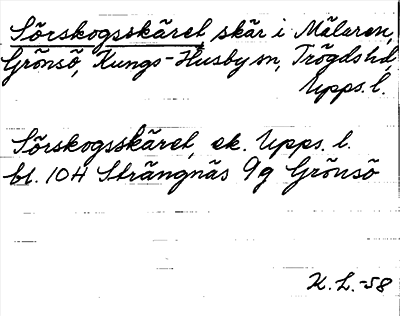 Sörskogsskäret, skär i Mälaren,
Grönsö, Kungs-Husby sn, Trögds hd,
Upps. l.
Sörskogsskäret, ek. Upps. l.
bl. 104 Strängnäs 9g Grönsö
K. L. -58